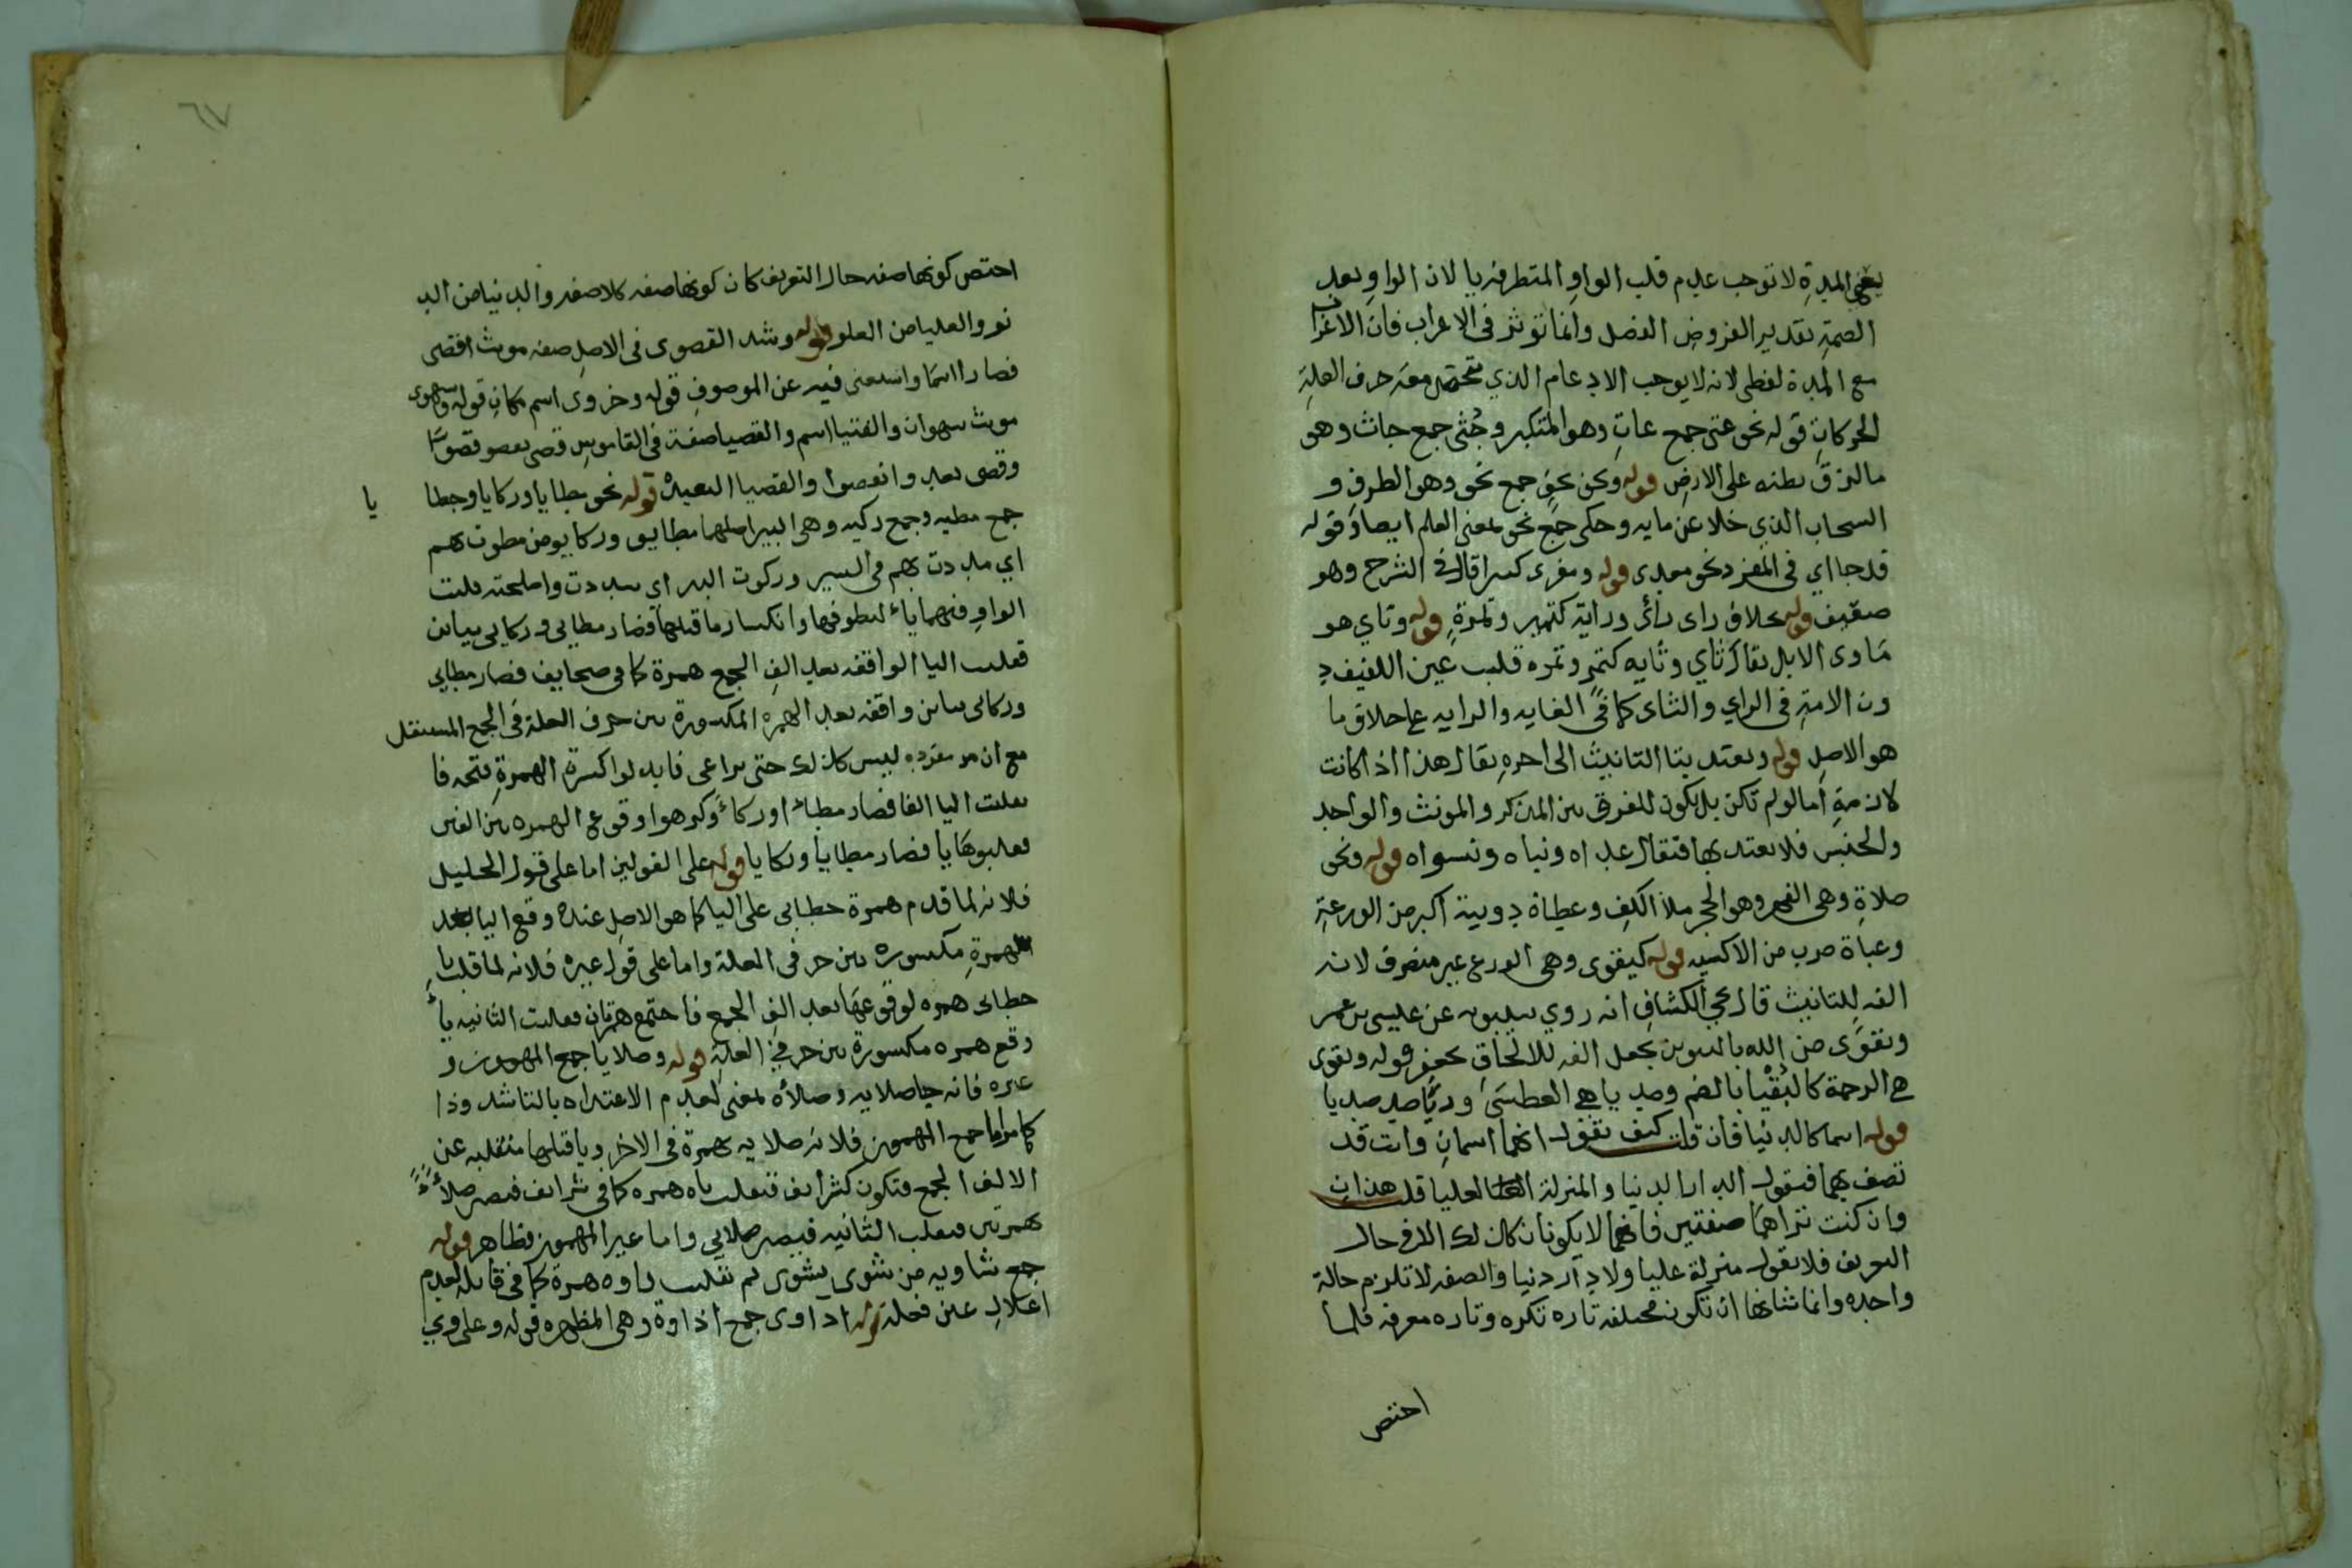 يعني المدة لا توجب عدم قلب الواو المتطرفه يا لان الواو بعد
الضمة تقدير العروض الفصل وانما توثر في الاعراب فان الاعراب
مع المدة لفظي لانه لا يوجب الادغام الذي تتحصل معه حرف العلة
الحركات قوله نحو عتى جمع عات وهو المتكبر وجثى جمع جاث وهو
ما لزق بطنه على الارض قوله ونحن نحو جمع نحو وهو الطرف و
السحاب الذي خلا عن مايه وحكى جمع نحو بمعنى العلم ايضا قوله
قد جا اي في المفرد نحو معدى قوله ومغزى كسرا قال في الشرح وهو
ضعيف قوله بخلاف راى رائ وراية كتمر وتمرة قوله وثاي هو
ماوى الابل يقال ثاي وثايه كتمر وتمره قلب عين اللفيف د
ون اللامة في الراي والثاى كما في الغايه والرايه على خلاف ما
هو الاصل قوله ويعتد بتا التانيث الى اخره يقال هذا اذا كانت
لازمة اما لو لم تكن بل يكون للفرق بين المذكر والمونث والواحد
والجنس فلا يعتد بها فتقال عداه وبناه ونسواه قوله ونحو
صلاة وهي الفهر وهو الحجر ملأ الكف وعظاة دويبة اكبر من الوزعة
وعباة ضرب من الاكسيه قوله كتقوى وهى الورع غير منصرف لانه
الفه للتانيث قال في الكشاف انه روي سيبويه عن عيسى بن عمر
وتقوى من الله بالتنوين بجعل الفه للالحاق كجعفر قوله وبقوى
هي الرحمة كالبقيا بالضم وصديا هي العطشى وريا ضد صديا
قوله اسما كالدنيا فان قلت كيف تقول انهما اسمان وانت قد
تصف بهما فتقول الدار الدنيا والمنزلة العليا قلت هذان
وان كنت تراهما صفتين فانهما لا يكونان كذلك الا في حال
التعريف فلا يقول منزلة عليا ولا دار دنيا والصفه لا تلزم حالة
واحده وانما شانها ان تكون مختلفه تاره نكره وتاره معرفه فلما
احتص
٦٧
احتص كونها صفه حال التعريف كان كونها صفه كلا صفه والدنيا من الد
نو والعليا من العلو قوله وشد القصوى في الاصل صفه مونث اقصى
فصار اسما واستغنى فيه عن الموصوف قوله وخزوى اسم مكان قوله وسهوى
مونث سهوان والفتيا اسم والقصيا صفة في القاموس قصى يقصو قصوا
وقصى بعد وانقصوا والقصيا البعيدة قوله نحو مطايا وركايا وخطا
يا
جمع مطيه وجمع ركيه وهى البير اصلهما مطايو وركايو من مطوت بهم
اي مددت بهم في السير وركوت البير اي سددت واصلحته قلبت
الواو فيهما ياء لتطرفها وانكسار ما قبلها فصار مطايي وركايي بيايين
فقلبت اليا الواقفه بعد الف الجمع همزة كما في صحايف فصار مطايي
وركايى بياين واقفه بعد الهمزه المكسورة بين حرف العلة في الجمع المستثقل
مع ان مفرده ليس كذلك حتى يراعى فابدلوا كسرة الهمزة فتحه فا
نقلبت اليا الفا فصار مطاءا وركاءا وكرهوا وقوع الهمزه بين الفين
فقلبوها يا فصار مطايا وركايا قوله على القولين اما على قول الخليل
فلانه لما قدم همزة خطايى على اليا كما هو الاصل عنده وقع اليا بعد
الهمزة مكسوره بين حرفى العلة واما على قول غيره فلانه لما قلب يا
خطايى همزه لوقوعها بعد الف الجمع فاجتمع همزتان فقلبت الثانيه ياء
وقع همزه مكسورة بين حرفي العلة قوله وصلايا جمع المهموز و
غيره فانه جا صلايه وصلاة بمعنى لعدم الاعتداد بالتا شد وذا
كما مر اما جمع المهموز فلانه صلايه بهمزة في الاخر ويا قبلها منقلبه عن
الالف الجمع فتكون كشرايف فتقلب ياه همزه كما في شرايف فيصير صلاءء
بهمزتين فيقلب الثانيه فيصير صلايي واما غير المهموز فظاهر قوله
جمع شاويه من شوى يشوى لم تقلب واوه همزة كما في قايله لعدم
اعلال عين فعله قوله اداوى جمع اداوة وهى المطهره قوله وعلاوي